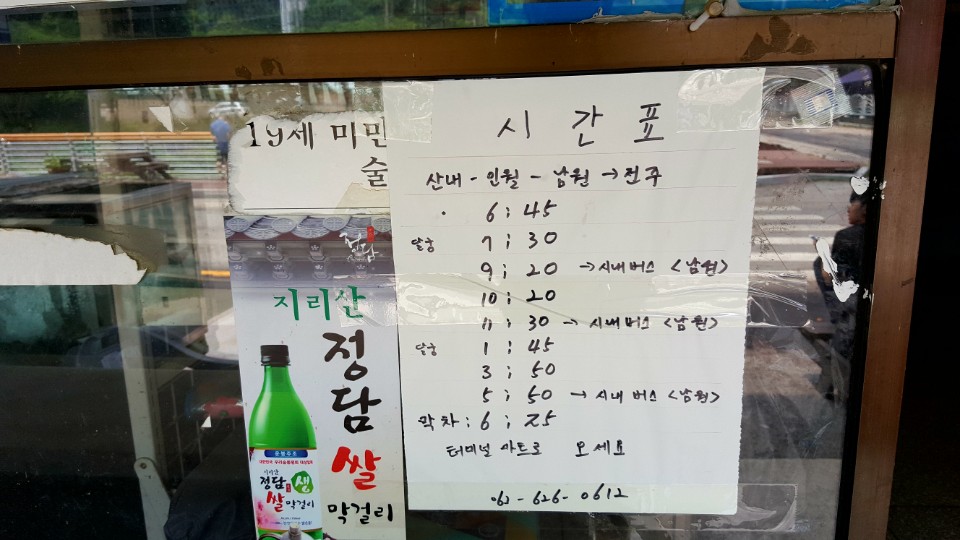 19세 미만
술
시간표
산내 - 인월 - 남원 → 전주
6 : 45
달궁 7 : 30
9 : 20 → 시내버스 <남원>
10 : 20
11 : 30 → 시내버스 <남원>
달궁 1 : 45
3 : 50
5 : 50 → 시내버스 <남원>
막차 : 6 : 25
터미널 마트로 오세요
063-626-0612
정담
지리산
정담
쌀
막걸리
지리산
정담 생
쌀막걸리